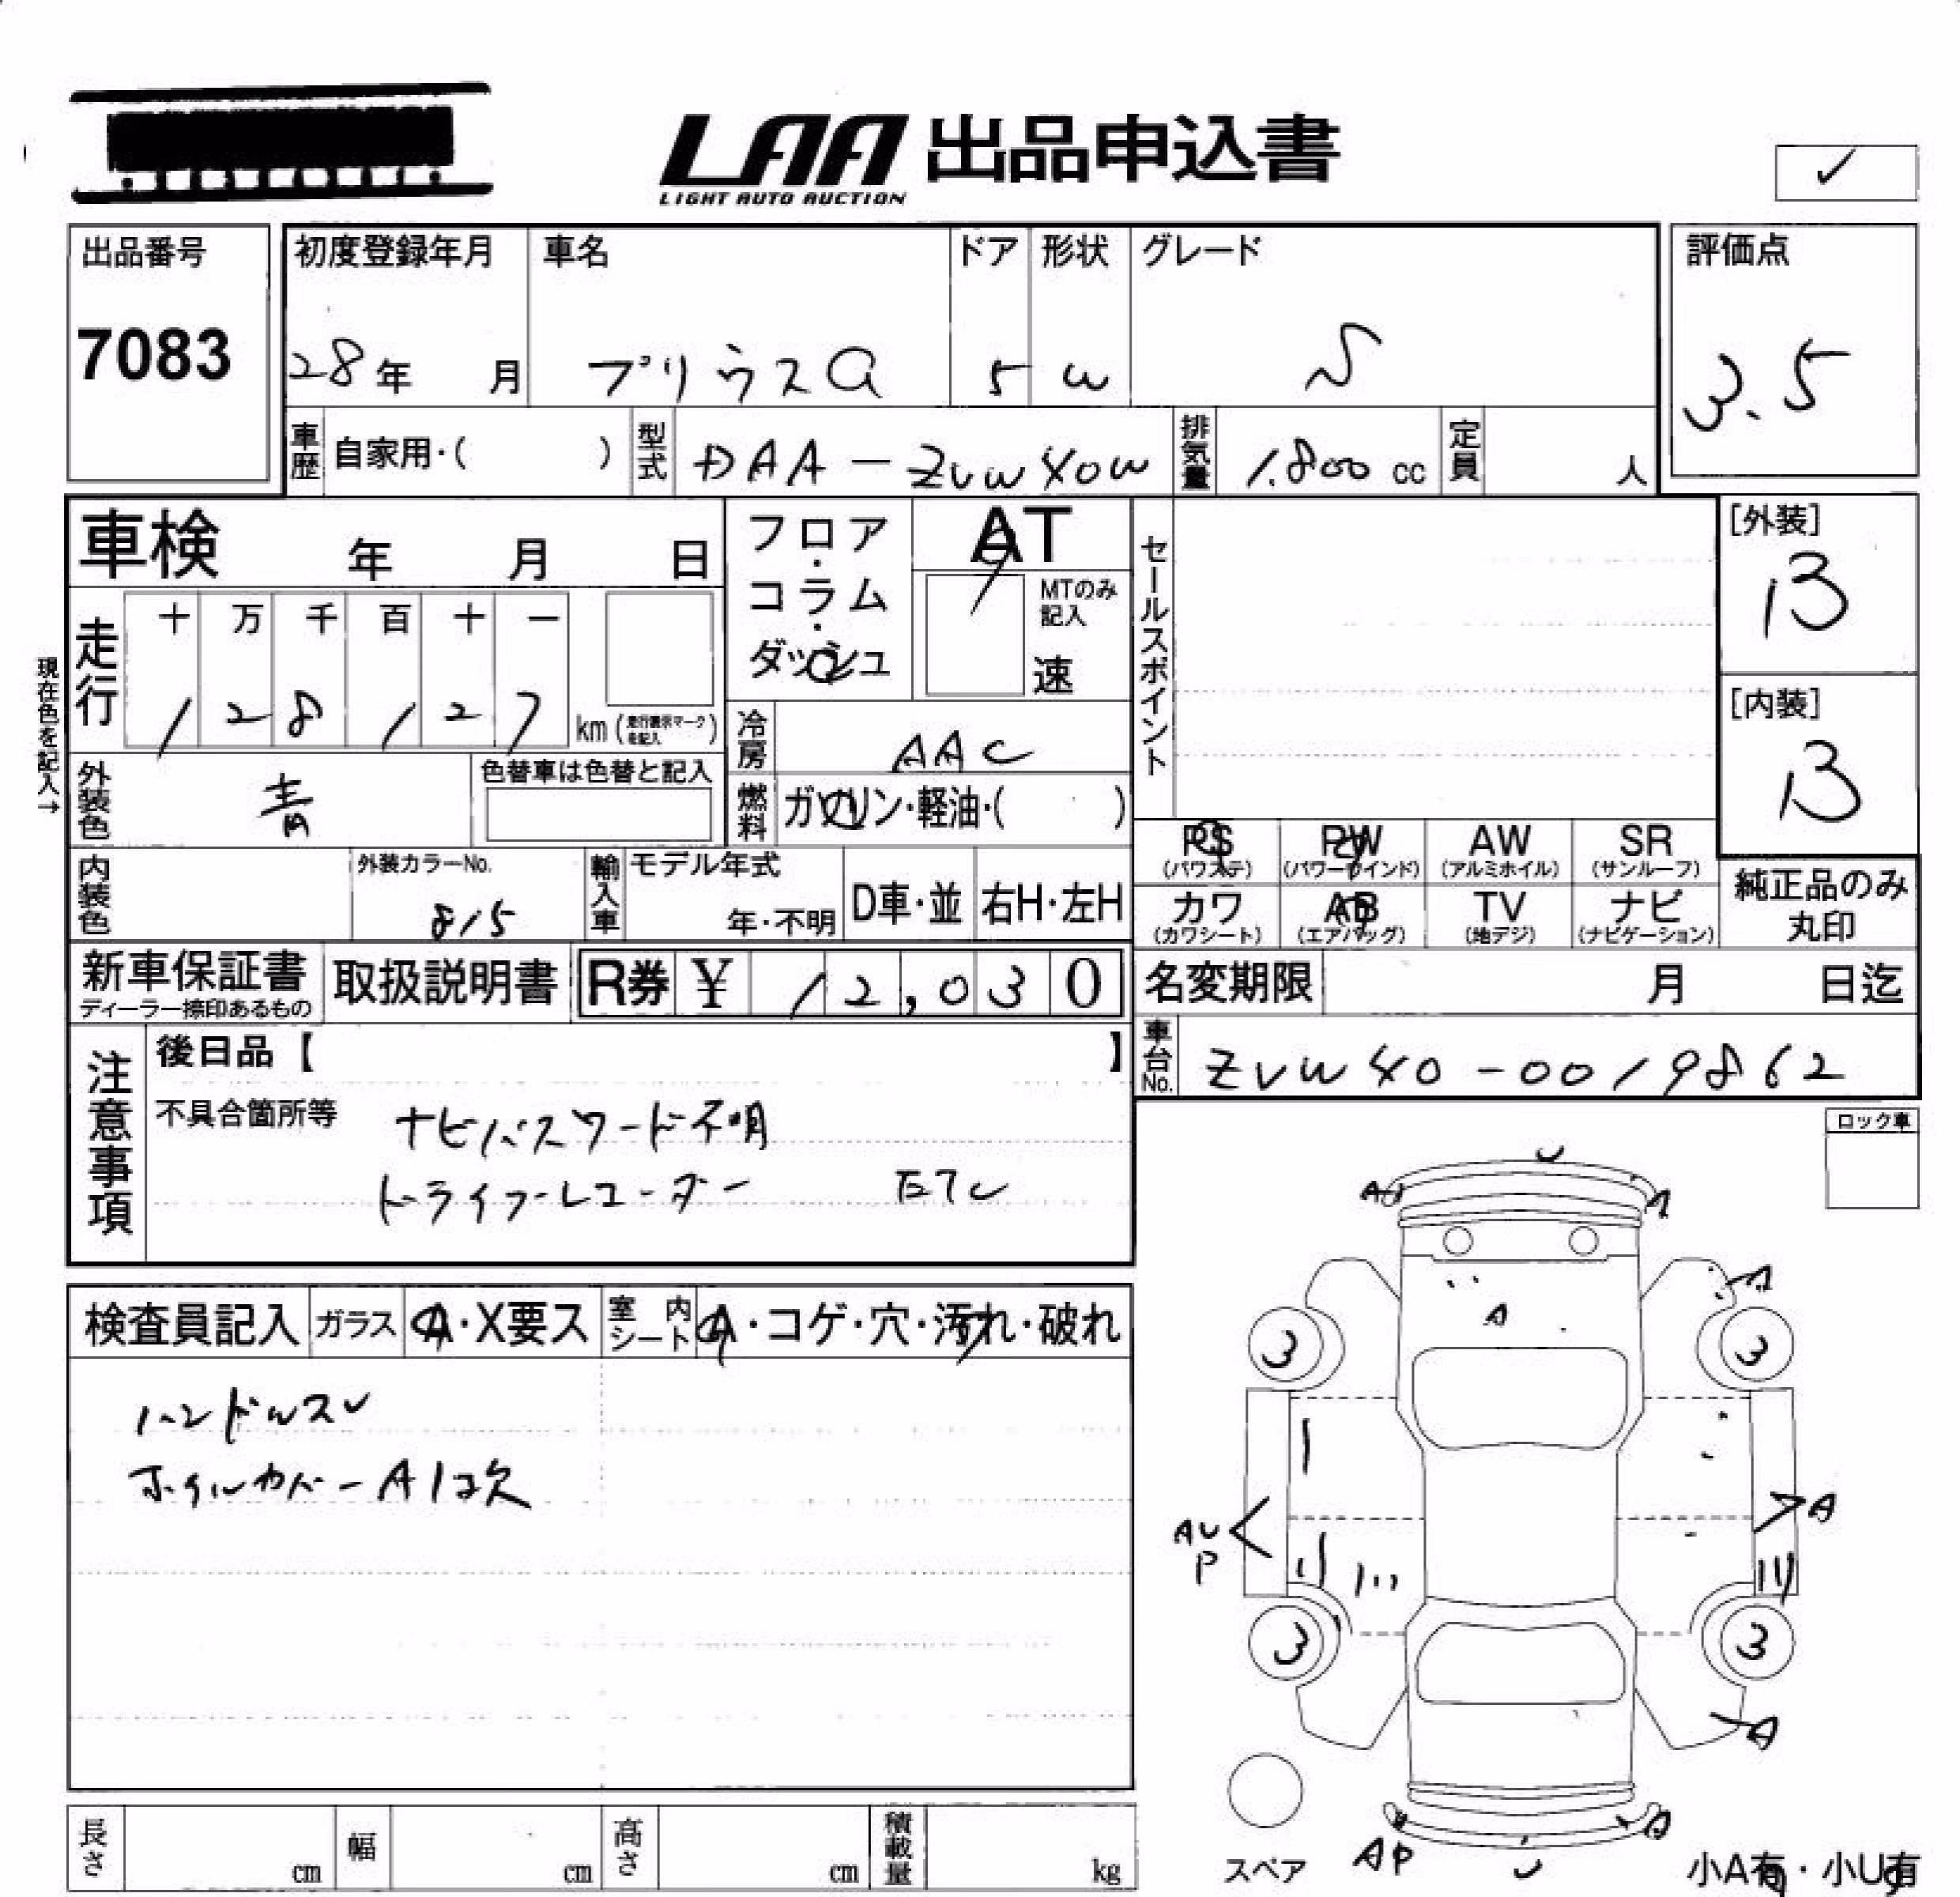 LAA 出品申込書
LIGHT AUTO AUCTION
✓
出品番号
7083
初度登録年月
28年 月
車名
プリウスα
ドア
5
形状
W
グレード
S
評価点
3.5
車歴 自家用・( )
型式 DAA-ZVW40W
排気量 1.800 cc
定員 人
車検 年 月 日
フロア・コラム・ダッシュ
AT
MTのみ記入
速
セールスポイント
[外装]
B
[内装]
B
現在色を記入→
走行
十 万 千 百 十 一
1 2 8 1 2 7 km (走行表示マークを記入)
冷房 AAC
外装色 青
色替車は色替と記入
燃料 ガソリン・軽油・( )
PS (パワステ)
PW (パワーウインド)
AW (アルミホイル)
SR (サンルーフ)
カワ (カワシート)
AB (エアバッグ)
TV (地デジ)
ナビ (ナビゲーション)
純正品のみ丸印
内装色
外装カラーNo.
815
輸入車 モデル年式
年・不明
D車・並
右H・左H
新車保証書
ディーラー捺印あるもの
取扱説明書
R券 ¥ 12,030
名変期限 月 日迄
車台No. ZVW40-0019862
注意事項
後日品【 】
不具合箇所等 ナビパスワード不明
ドライブレコーダー ETC
ロック車
検査員記入 ガラス A・X要ス 室内シート A・コゲ・穴・汚れ・破れ
ハンドルスレ
ホイルカバーA1コ欠
U
AU
A
A
A
3
3
AU
P
A
3
3
A
A
AP
U
スペア
小A有・小U有
長さ cm
幅 cm
高さ cm
積載量 kg